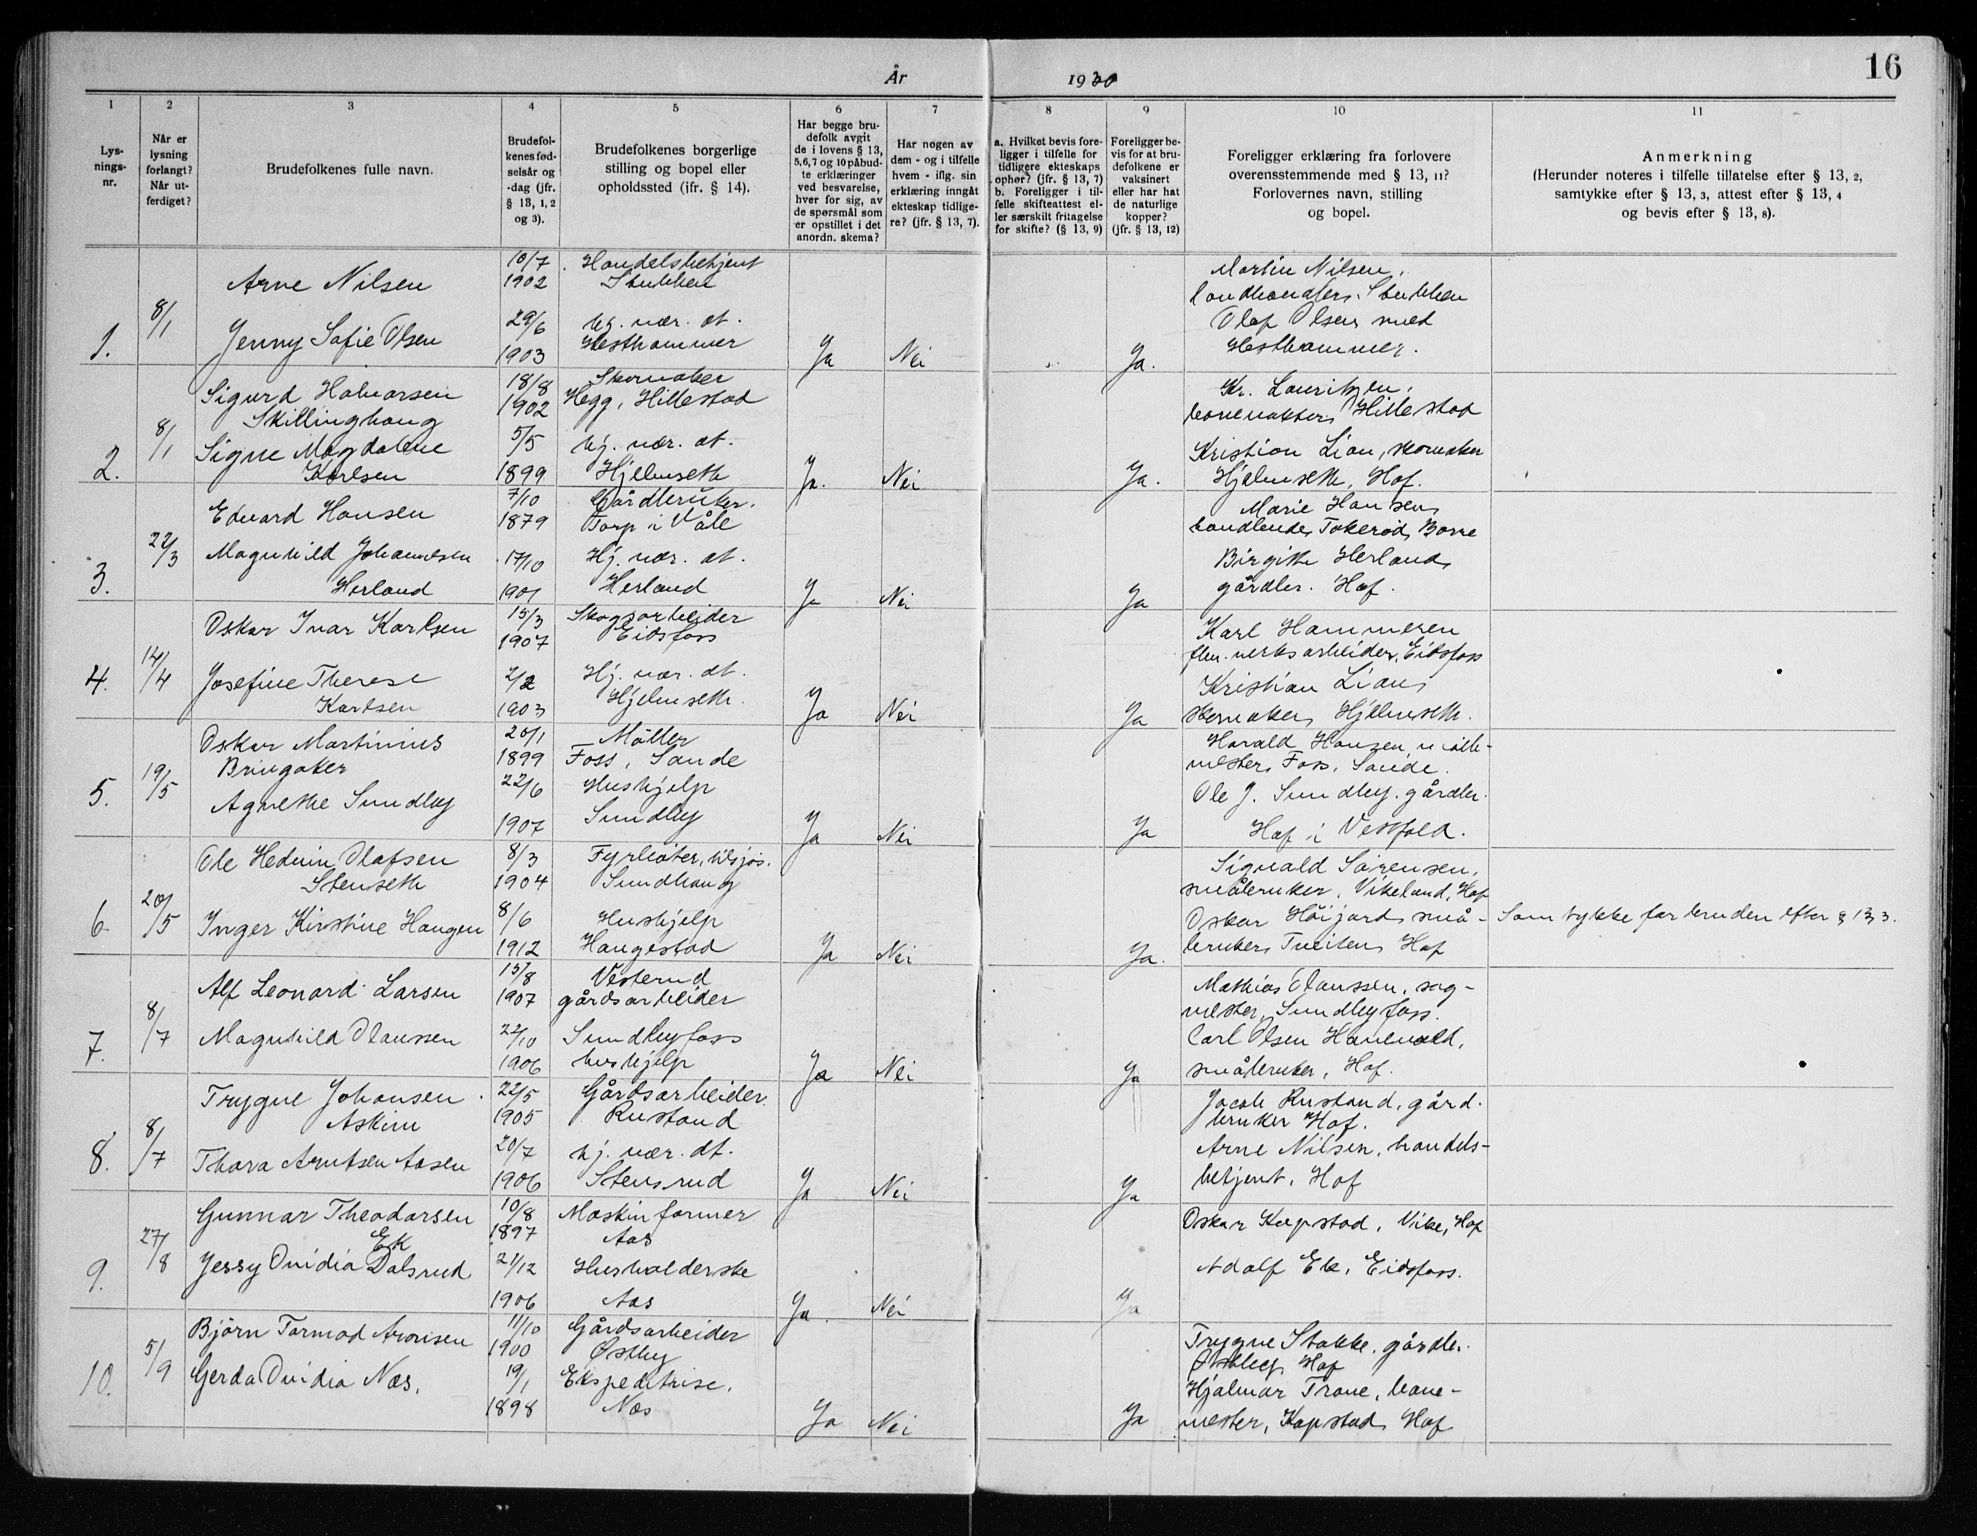 16
År 1930
1 2 3 4 5 6 7 8 9 10 11
Lysningsnr.
Når er lysning forlangt? Når utferdiget?
Brudefolkenes fulle navn.
Brudefolkenes fødselsår og -dag (jfr. § 13, 1, 2 og 3).
Brudefolkenes borgerlige stilling og bopel eller opholdssted (jfr. § 14).
Har begge brudefolk avgit de i lovens § 13, 5, 6, 7 og 10 påbudte erklæringer ved besvarelse, hver for sig, av de spørsmål som er opstillet i det anordn. skema?
Har nogen av dem - og i tilfelle hvem - iflg. sin erklæring inngåt ekteskap tidligere? (jfr. § 13, 7).
a. Hvilket bevis foreligger i tilfelle for tidligere ekteskaps ophør? (jfr. § 13, 7)
b. Foreligger i tilfelle skifteattest eller særskilt fritagelse for skifte? (§ 13, 9)
Foreligger bevis for at brudefolkene er vaksinert eller har hat de naturlige kopper? (jfr. § 13, 12)
Foreligger erklæring fra forlovere overensstemmende med § 13, 11? Forlovernes navn, stilling og bopel.
Anmerkning
(Herunder noteres i tilfelle tillatelse efter § 13, 2, samtykke efter § 13, 3, attest efter § 13, 4 og bevis efter § 13, 8).
1. 8/1
Arne Nilsen 10/7 1902 Handelsbetjent Stubben
Jenny Sofie Olsen 29/6 1903 hj. vær. dt. Hesthammer
Ja Nei Ja.
Martin Nilsen,
landhandler, Stubben
Olaf Olsen med
Hesthammer.
2. 8/1
Sigurd Halvorsen 18/8 1902 Skomaker
Skillinghaug Hegg, Hillestad
Signe Magdalene 5/5 hj. vær. dt.
Karlsen 1899 Hjelmseth
Ja. Nei Ja.
Kr. Lauritzen,
banevokter, Hillestad
Kristian Lian, skomaker
Hjelmseth, Hof.
3. 22/3
Edvard Hansen 7/10 1879 Gårdbruker. Torp i Våle
Magnhild Johannesen 17/10 Hj. vær. dt.
Herland 1901 Herland
Ja Nei Ja
Marie Hansen
handlende, Tokerød, Borre
Birgitte Herland,
gårdbr. Hof.
4. 14/4
Oskar Ivar Karlsen 15/3 1907 Skogsarbeider Eidsfoss
Josefine Therese 2/2 Hj. vær. dt.
Karlsen 1903 Hjelmseth.
Ja Nei Ja
Karl Hammeren
fhv. verksarbeider, Eidsfoss
Kristian Lian,
skomaker, Hjelmseth.
5. 19/5
Oskar Martinius 20/1 Møller
Bringaker 1899 Foss, Sande
Agnethe Sundby 22/6 1907 Hushjelp Sundby
Ja Nei Ja
Harald Hansen, mølle-
mester, Foss, Sande.
Ole J. Sundby, gårdbr.
Hof i Vestfold.
6. 20/5
Ole Hedvin Olafsen 8/3 Fyrbøter, tilsjøs.
Stenseth 1904 Sundhaug
Inger Kirstine Haugen 8/6 1912 Hushjelp Haugestad
Ja Nei Ja.
Sigvald Sørensen,
småbruker, Vikeland, Hof
Oskar Höijord, små-
bruker, Tveiten, Hof
Samtykke for bruden efter § 13, 3.
7. 8/7
Alf Leonard Larsen 15/8 1907 Vesterud gårdsarbeider
Magnhild Olaussen 22/10 1906 Sundbyfoss hushjelp
Ja Nei Ja
Mathias Olaussen, sag-
mester, Sundbyfoss.
Carl Olsen Hanevold,
småbruker, Hof.
8. 8/7
Trygve Johansen 22/5 Gårdsarbeider.
Askim 1905 Rustand
Thora Arntsen Aasen 20/7 1906 hj. vær. dt. Stensrud
Ja Nei Ja
Jacob Rustand, gård-
bruker Hof.
Arne Nilsen, handels-
betjent, Hof
9. 27/8
Gunnar Theodorsen 10/8 Maskinformer
Ek 1897 Aas
Jessy Ovidia Dalsrud 21/12 1906 Husholderske Aas
Ja Nei Ja
Oskar Kopstad, Vike, Hof
Adolf Ek, Eidsfoss.
10. 5/9
Bjørn Tormod Aronsen 11/10 1900 Gårdsarbeider Østby
Gerda Ovidia Næs, 19/1 1898 Ekspeditrise, Næs
Ja Nei Ja
Trygve Stokke, gårdbr.
Østby, Hof
Hjalmar Trane, bane-
mester, Kopstad, Hof